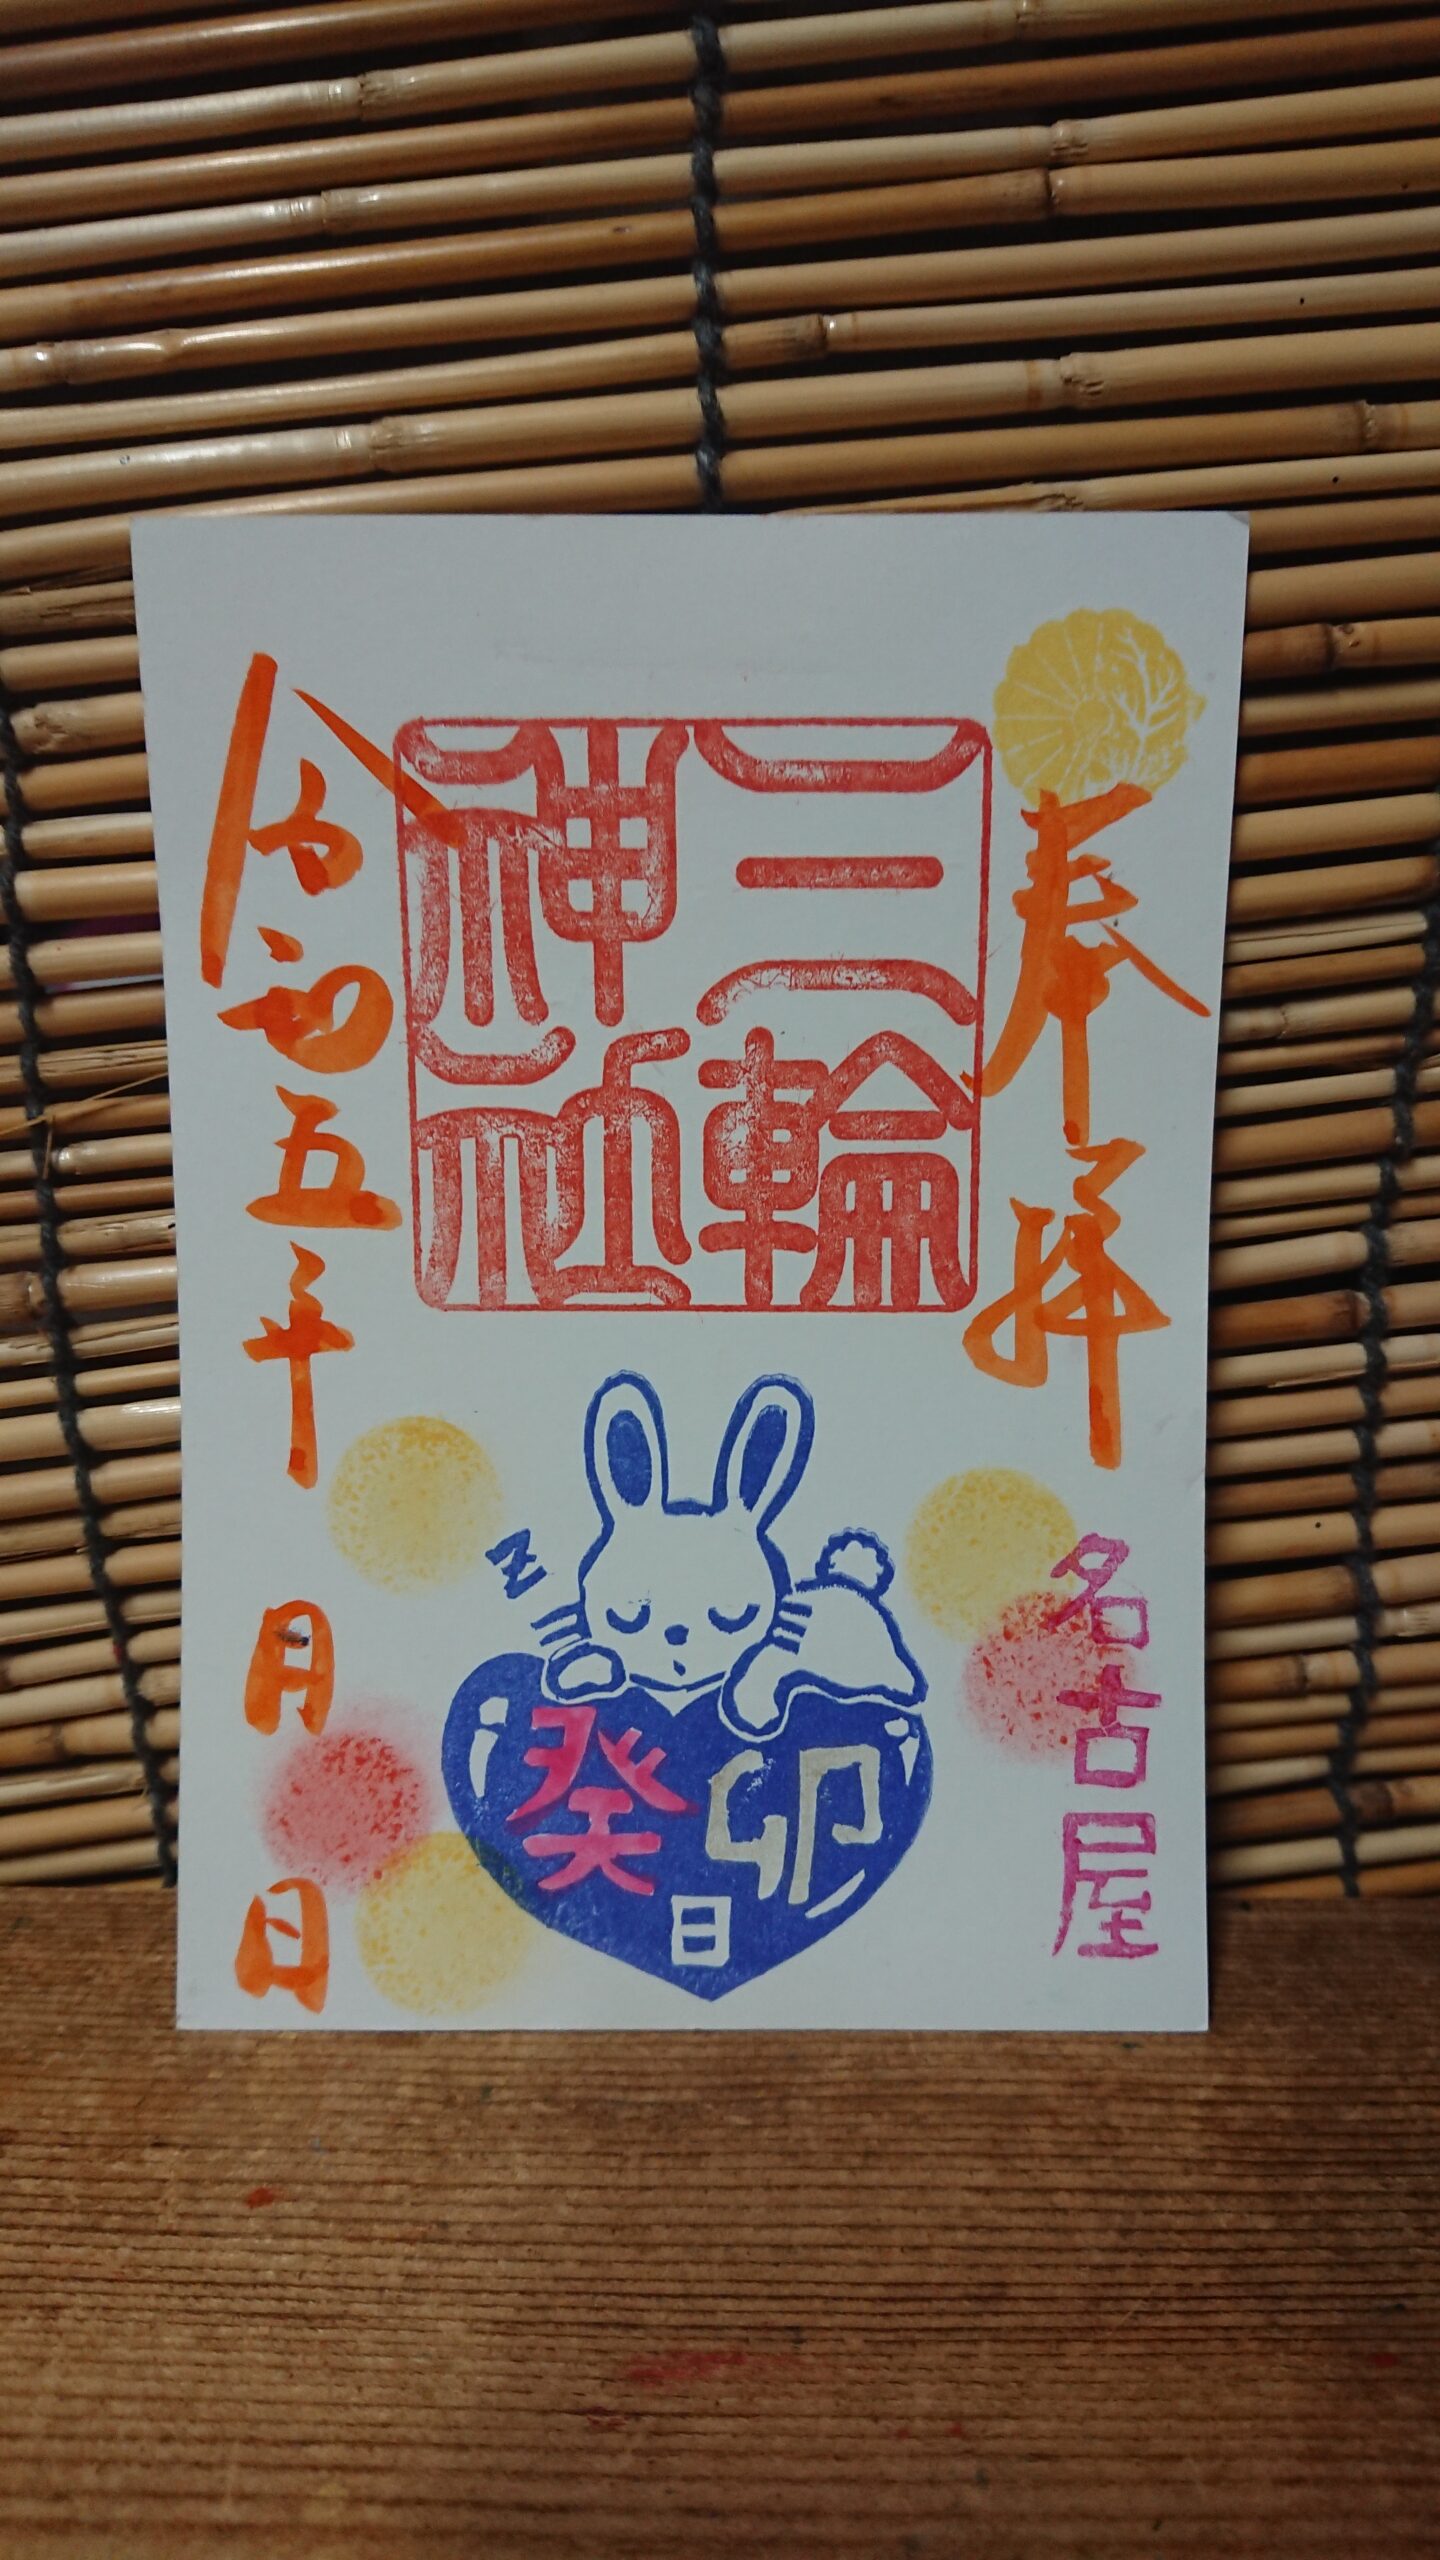 奉拝
名古屋
三輪
神社
Z
癸卯
日
令和五年
月
日